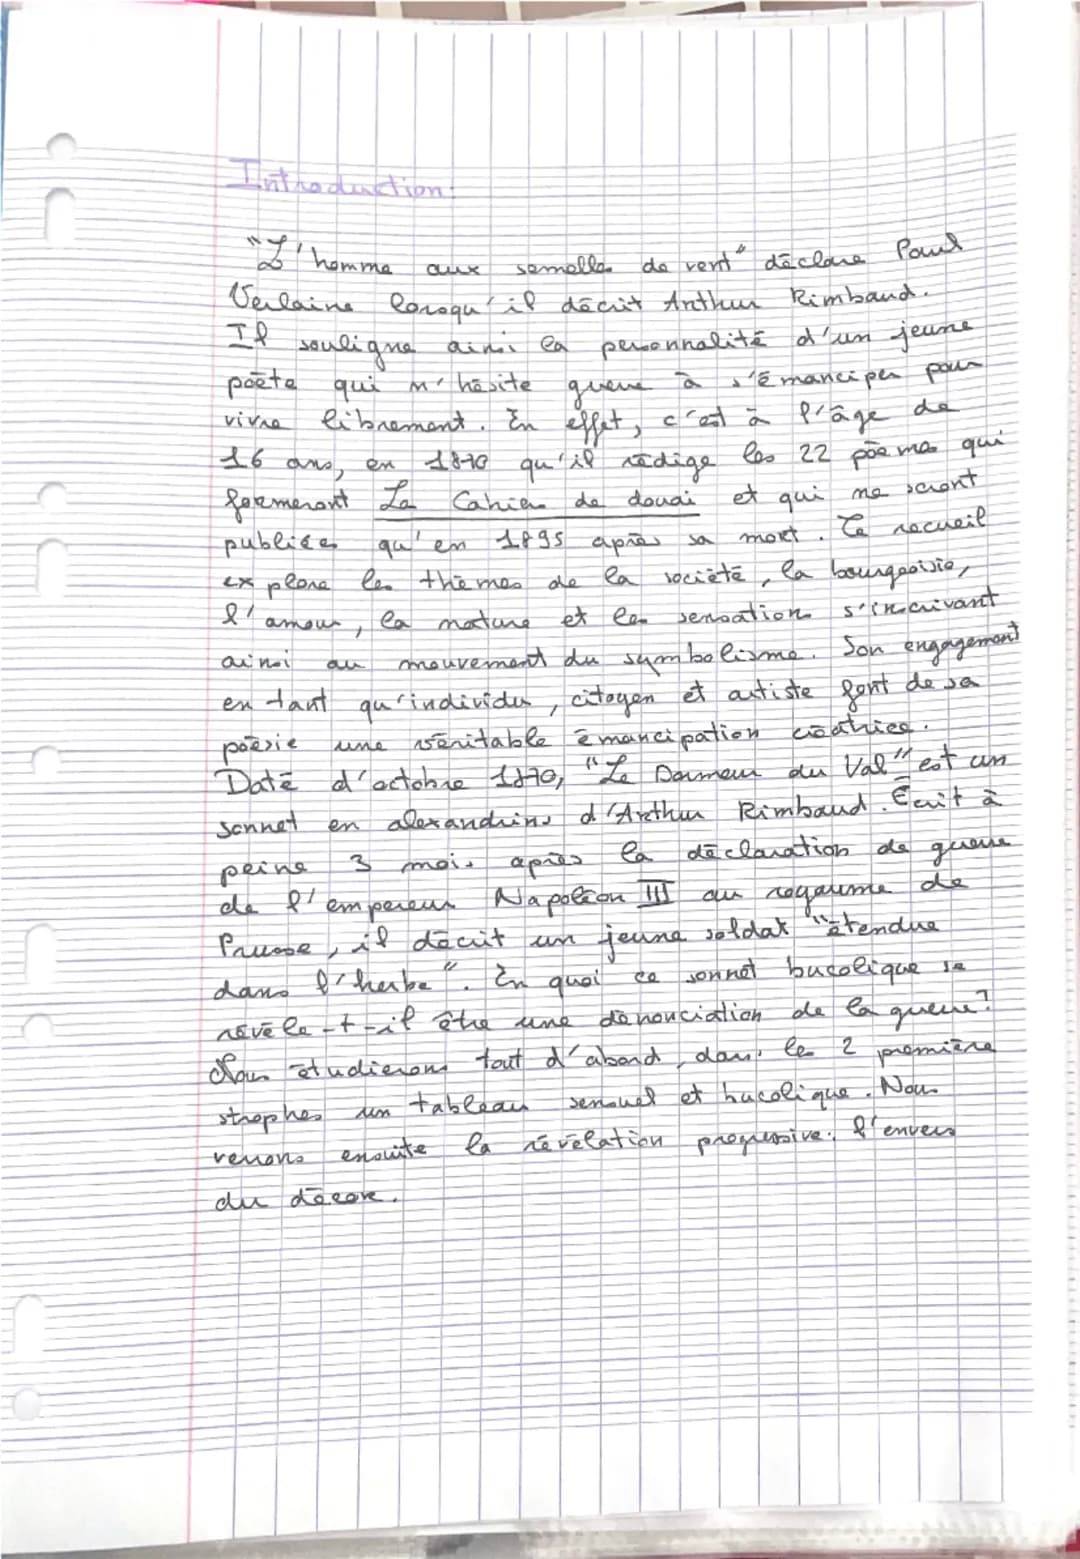 Introduction:
"L'homme aux semelle de vent" déclare Paul
Verlaine lorsqu'il décrit Arthur Rimbaud.
Il souligne ainsi la personnalité d'un jeune
poète qui n'hésite guere à s'émanciper pour
vivre librement. En effet, c'est à l'âge de
16 ans, en 1870 qu'il rédige les 22 poèmes qui
formeront Le Cahier de douai et qui ne seront
publiées qu'en 1895 après sa mort. Ce recueil
explore les thèmes de la société, la bourgeoisie,
l'amour, la nature et les sensation s'inscrivant
ainsi au mouvement du symbolisme. Son engagement
en tant qu'individu, citoyen et artiste font de sa
poésie une véritable émancipation créatrice.
Daté d'octobre 1870, "Le Dormeur du Val" est un
sonnet en alexandrins d'Arthur Rimbaud. Écrit à
peine 3 mois après la déclaration de guerre
de l'empereur Napoléon III au royaume de
Prusse, il décrit un jeune soldat "étendue
dans l'herbe". En quoi ce sonnet bucolique se
révèle-t-il être une dénonciation de la guerre?
Nous étudierons tout d'abord, dans les 2 première
strophes un tableau sensuel et bucolique. Nous
verrons ensuite la révélation progressive: l'envers
du décore.